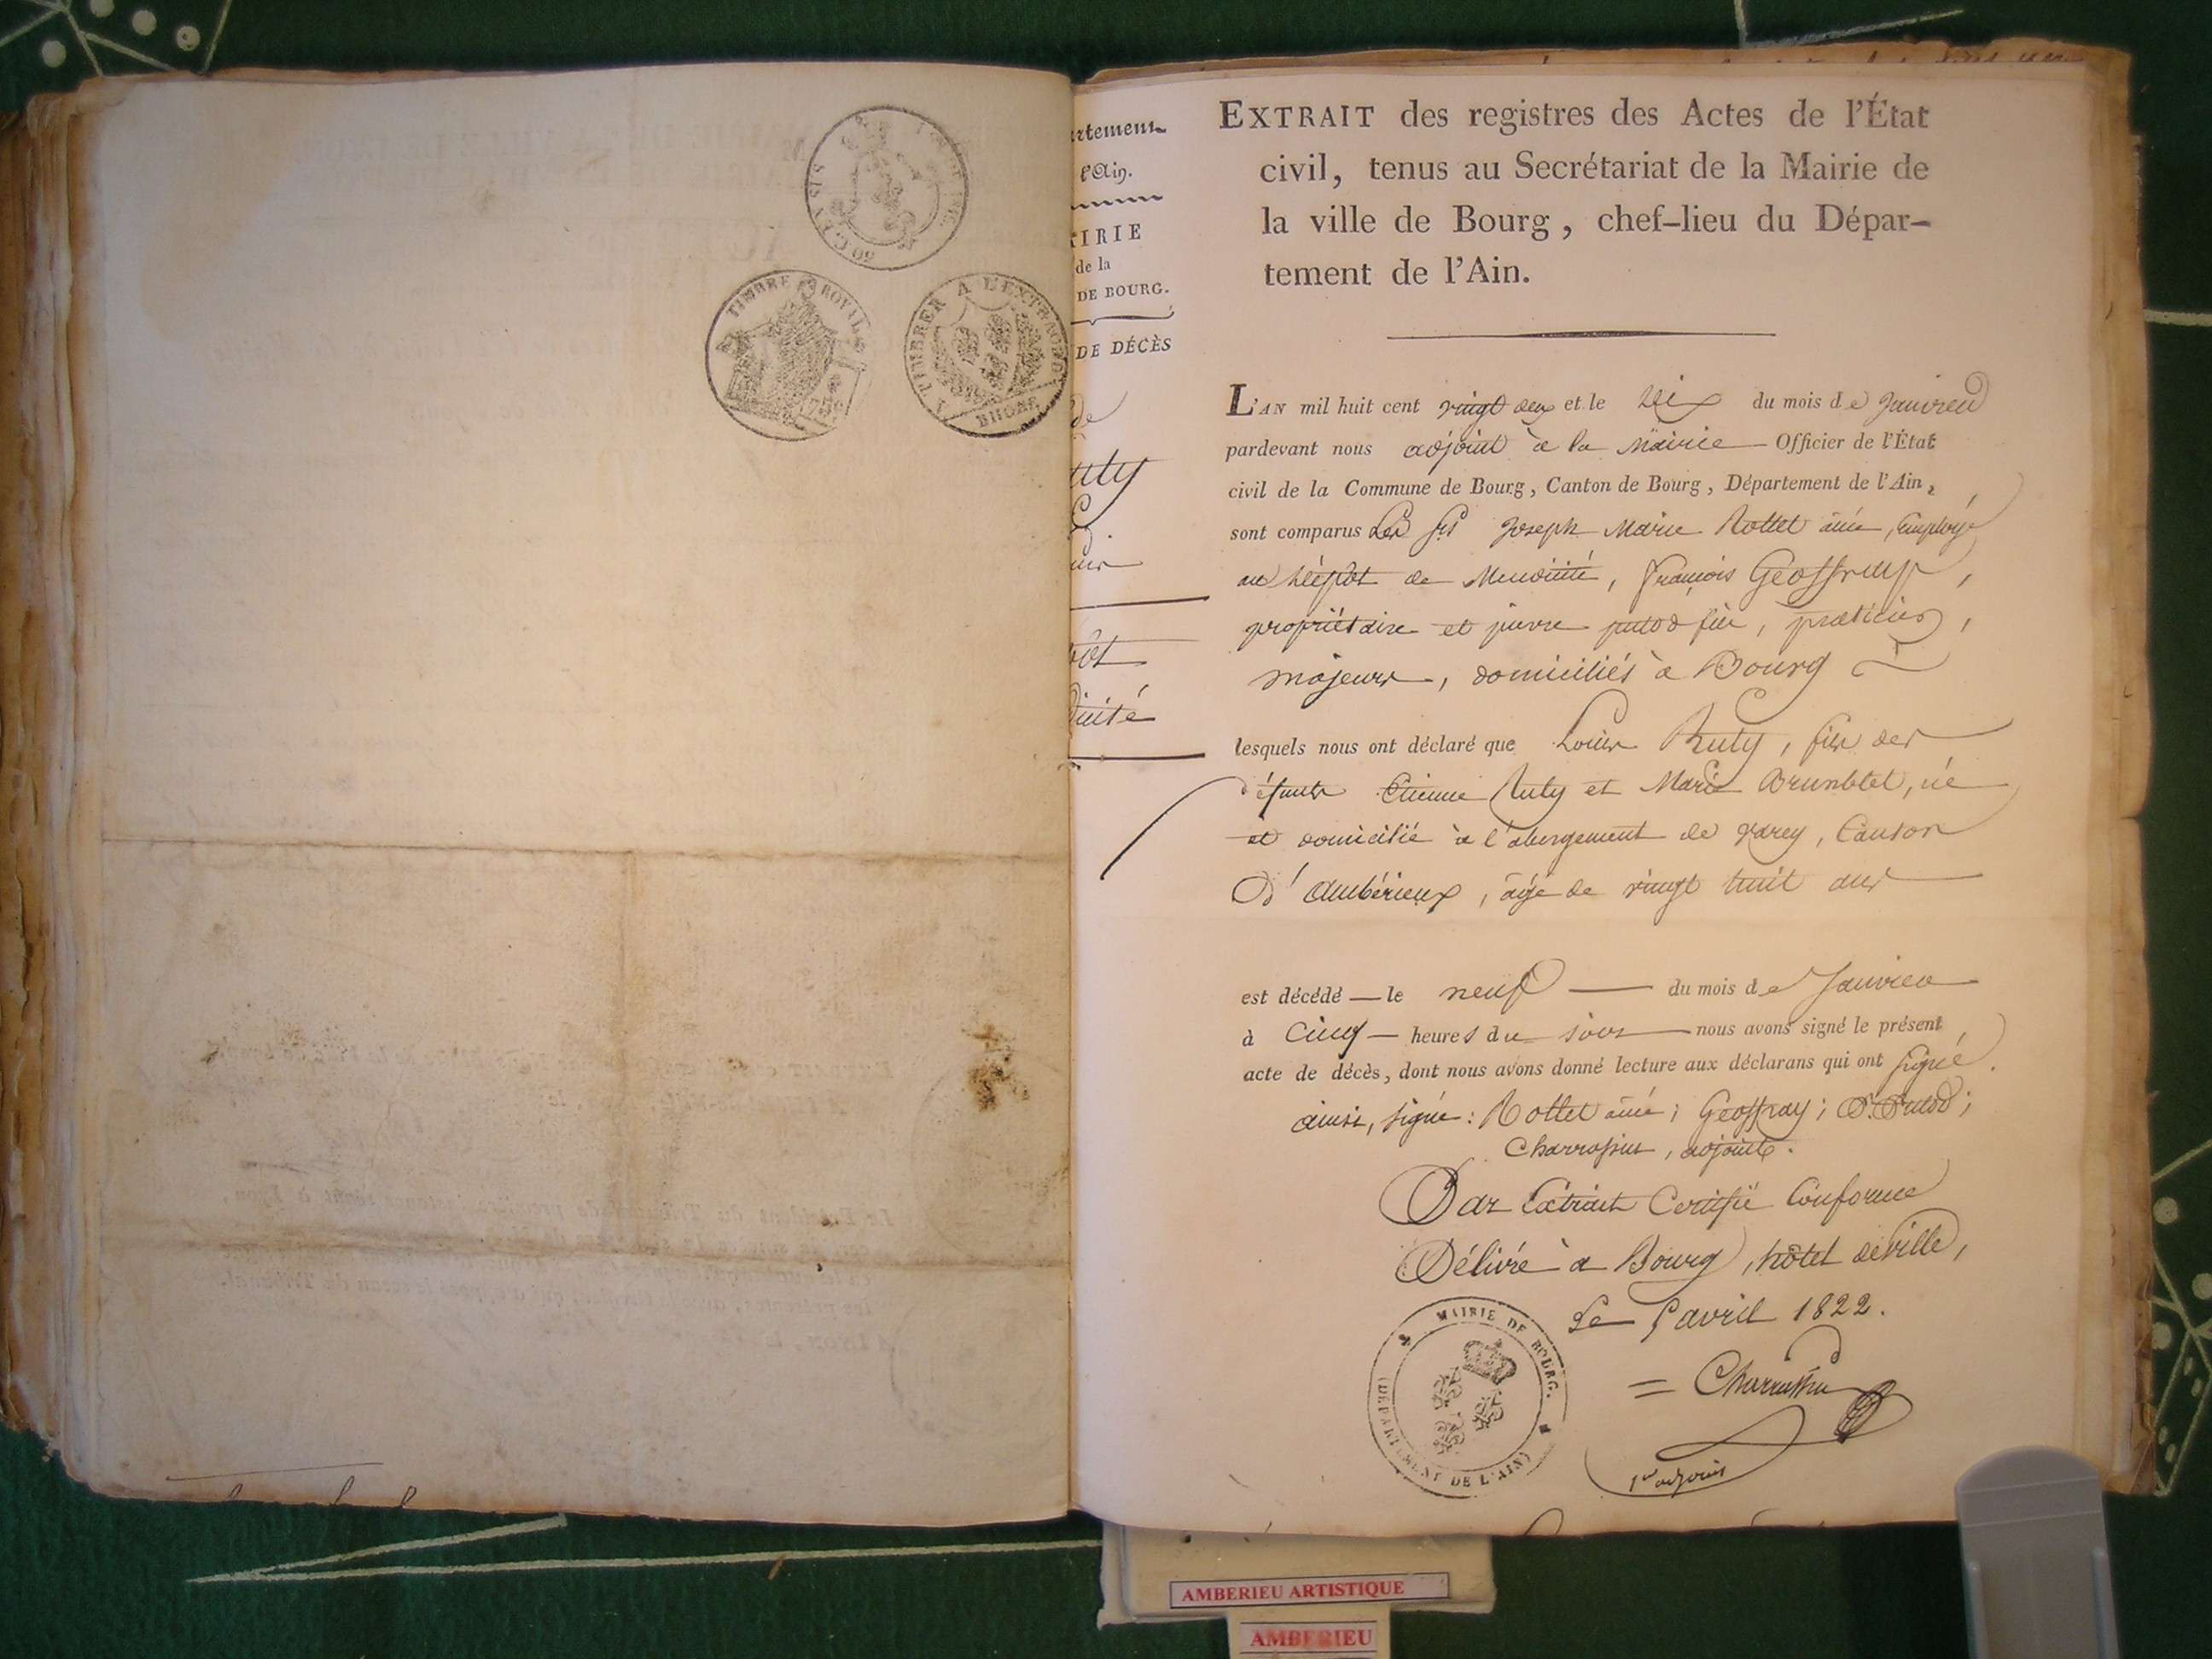 TIMBRE ROYAL
75
A TIMBRER A L'EXTRAORD.
RHONE
artement
l'Ain.
AIRIE
de la
DE BOURG.
DE DÉCÈS
de
uty
vôt
dicité
EXTRAIT des registres des Actes de l'État
civil, tenus au Secrétariat de la Mairie de
la ville de Bourg, chef-lieu du Dépar-
tement de l'Ain.
L'AN mil huit cent vingt deux et le dix du mois de Janvier
pardevant nous adjoint à la Mairie Officier de l'État
civil de la Commune de Bourg, Canton de Bourg, Département de l'Ain,
sont comparus Les Srs Joseph Marie Rollet ainé, Employé
au Dépôt de Mendicité, François Geoffray,
propriétaire et pierre putod fils, praticien,
majeurs, domiciliés à Bourg
lesquels nous ont déclaré que Louis Ruty, fils des
défunts Etienne Ruty et Marie Brunblet, né
et domicilié à l'abergement de varey, Canton
d'Ambérieux, âgé de vingt huit ans
est décédé le neuf du mois de Janvier
à Cinq heures du soir nous avons signé le présent
acte de décès, dont nous avons donné lecture aux déclarans qui ont signé.
ainsi, signé: Rollet ainé; Geoffray; P. Putod;
Charrassin, adjoint.
Par Extrait Certifié Conforme
Délivré à Bourg, hôtel de ville,
Le 5 avril 1822.
MAIRIE DE BOURG.
(DÉPARTEMENT DE L'AIN)
= Charrassin
1er adjoint
AMBERIEU ARTISTIQUE
AMBERIEU